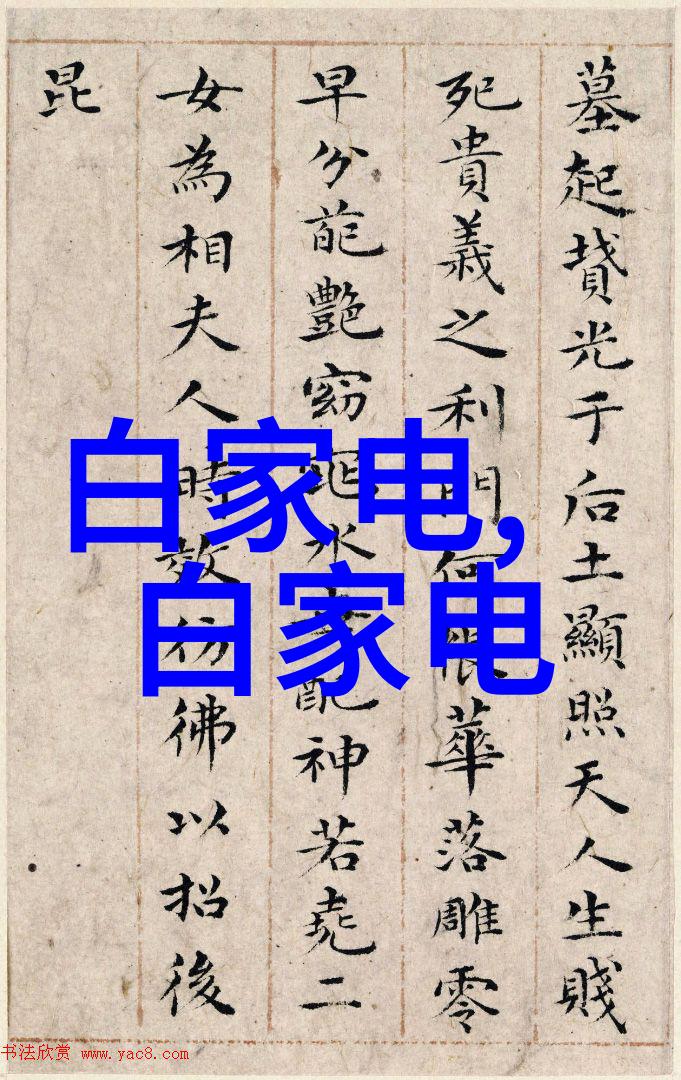 墓起墳光于后土顯照天人生賤
死貴義之利門何悵華落雕零
早分葩艷窈窕永配神若堯二
女為相夫人時效彷彿以招後
昆
白家电,
白家电
书法欣赏 www.yac8.com